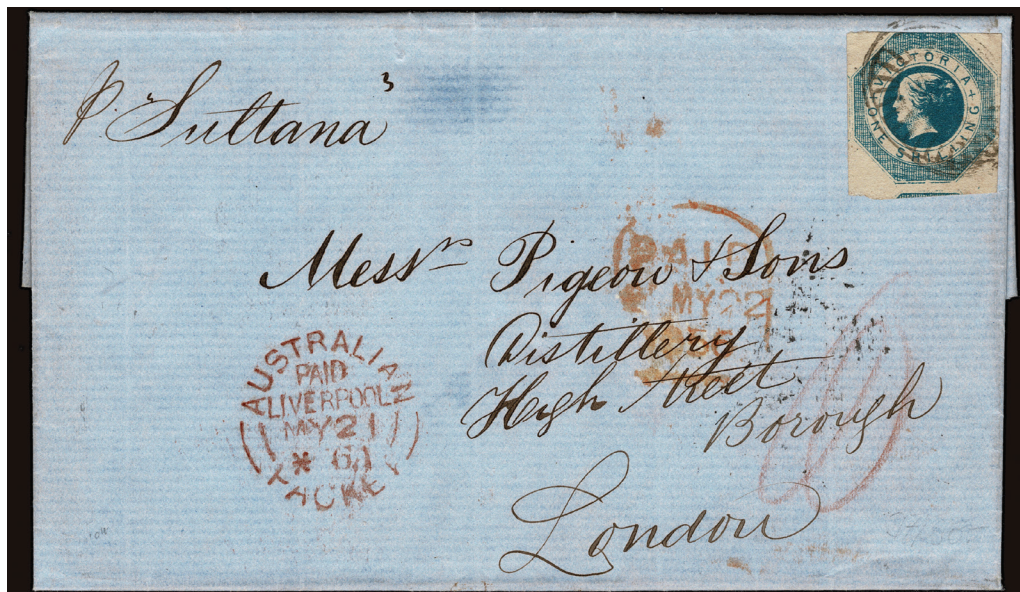 p. "Sultana"
VICTORIA
ONE SHILLING
Mess^rs Pigeon & Sons
Distillery
High Street
Borough
London
PAID
MY 22
AUSTRALIAN
PAID
LIVERPOOL
MY 21
PACKET